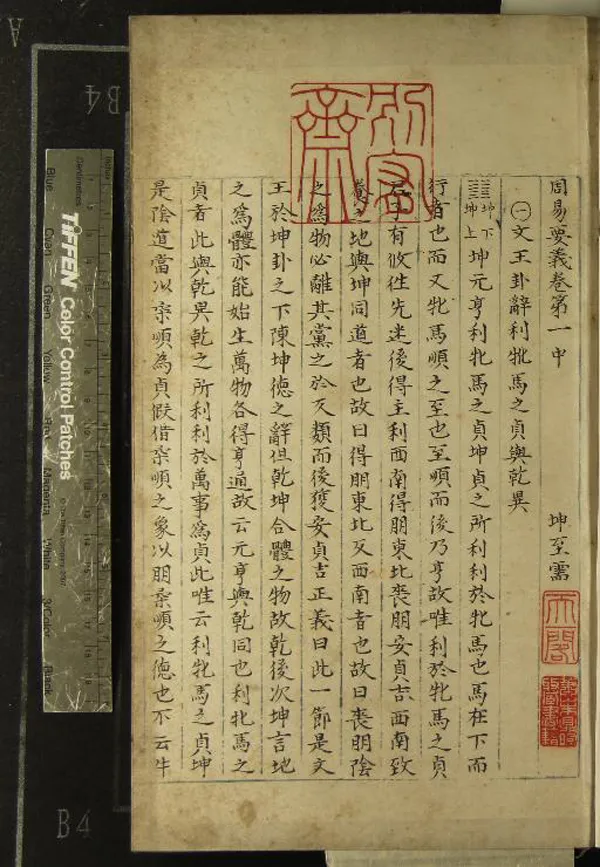 周易要義卷第一中 坤至需
㊀文王卦辭利牝馬之貞與乾異
䷁坤下坤上坤元亨利牝馬之貞坤貞之所利利於牝馬也馬在下而
行者也而又牝馬順之至也至順而後乃亨故唯利於牝馬之貞
君子有攸往先迷後得主利西南得朋東北喪朋安貞吉西南致
養之地與坤同道者也故曰得朋東北反西南者也故曰喪朋陰
之為物必離其黨之於反類而後獲安貞吉正義曰此一節是文
王於坤卦之下陳坤德之辭但乾坤合體之物故乾後次坤言地
之為體亦能始生萬物各得亨通故云元亨與乾同也利牝馬之
貞者此與乾異乾之所利利於萬事為貞此唯云利牝馬之貞坤
是陰道當以柔順為貞假借柔順之象以明柔順之德也不云牛
天閣
B4
B4
A
TIFFEN Color Control Patches
Centimetres
Inches
Blue
Cyan
Green
Yellow
Red
Magenta
White
3/Color
Black